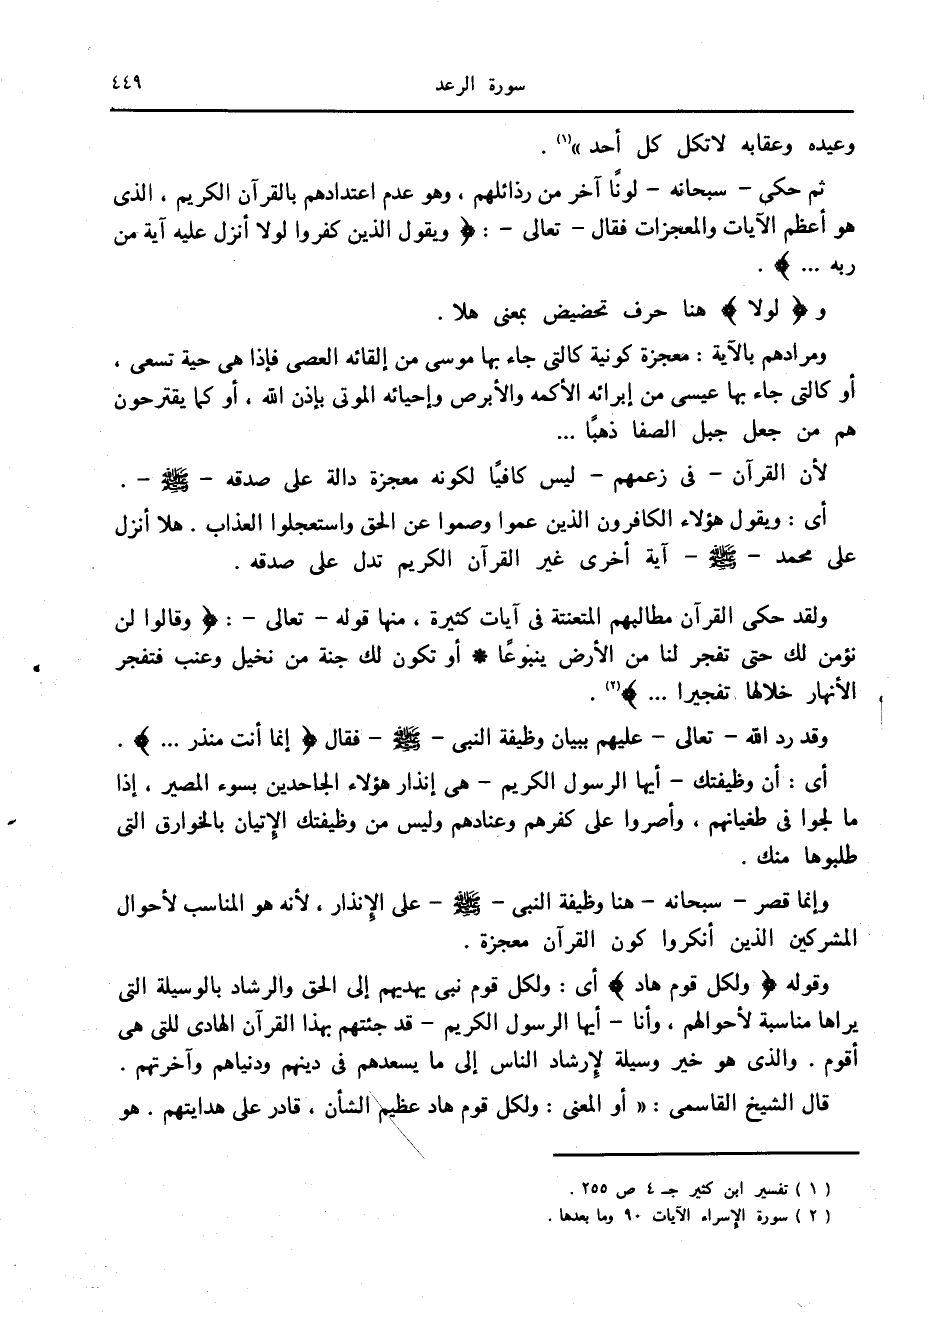 سورة الرعد ٤٤٩
وعيده وعقابه لاتكل كل أحد »(١) .
ثم حكى – سبحانه – لونًا آخر من رذائلهم ، وهو عدم اعتدادهم بالقرآن الكريم ، الذى
هو أعظم الآيات والمعجزات فقال – تعالى – : ﴿ ويقول الذين كفروا لولا أنزل عليه آية من
ربه ... ﴾ .
و ﴿ لولا ﴾ هنا حرف تحضيض بمعنى هلا .
ومرادهم بالآية : معجزة كونية كالتى جاء بها موسى من إلقائه العصى فإذا هى حية تسعى ،
أو كالتى جاء بها عيسى من إبرائه الأكمه والأبرص وإحيائه الموتى بإذن الله ، أو كما يقترحون
هم من جعل جبل الصفا ذهبًا ...
لأن القرآن – فى زعمهم – ليس كافيًا لكونه معجزة دالة على صدقه – ﷺ – .
أى : ويقول هؤلاء الكافرون الذين عموا وصموا عن الحق واستعجلوا العذاب . هلا أنزل
على محمد – ﷺ – آية أخرى غير القرآن الكريم تدل على صدقه .
ولقد حكى القرآن مطالبهم المتعنتة فى آيات كثيرة ، منها قوله – تعالى – : ﴿ وقالوا لن
نؤمن لك حتى تفجر لنا من الأرض ينبوعًا * أو تكون لك جنة من نخيل وعنب فتفجر
الأنهار خلالها تفجيرا ... ﴾(٢) .
وقد رد الله – تعالى – عليهم ببيان وظيفة النبى – ﷺ – فقال ﴿ إنما أنت منذر ... ﴾ .
أى : أن وظيفتك – أيها الرسول الكريم – هى إنذار هؤلاء الجاحدين بسوء المصير ، إذا
ما لجوا فى طغيانهم ، وأصروا على كفرهم وعنادهم وليس من وظيفتك الإتيان بالخوارق التى
طلبوها منك .
وإنما قصر – سبحانه – هنا وظيفة النبى – ﷺ – على الإنذار ، لأنه هو المناسب لأحوال
المشركين الذين أنكروا كون القرآن معجزة .
وقوله ﴿ ولكل قوم هاد ﴾ أى : ولكل قوم نبى يهديهم إلى الحق والرشاد بالوسيلة التى
يراها مناسبة لأحوالهم ، وأنا – أيها الرسول الكريم – قد جئتهم بهذا القرآن الهادى للتى هى
أقوم . والذى هو خير وسيلة لإرشاد الناس إلى ما يسعدهم فى دينهم ودنياهم وآخرتهم .
قال الشيخ القاسمى : « أو المعنى : ولكل قوم هاد عظيم الشأن ، قادر على هدايتهم . هو
( ١ ) تفسير ابن كثير جـ ٤ ص ٢٥٥ .
( ٢ ) سورة الإسراء الآيات ٩٠ وما بعدها .